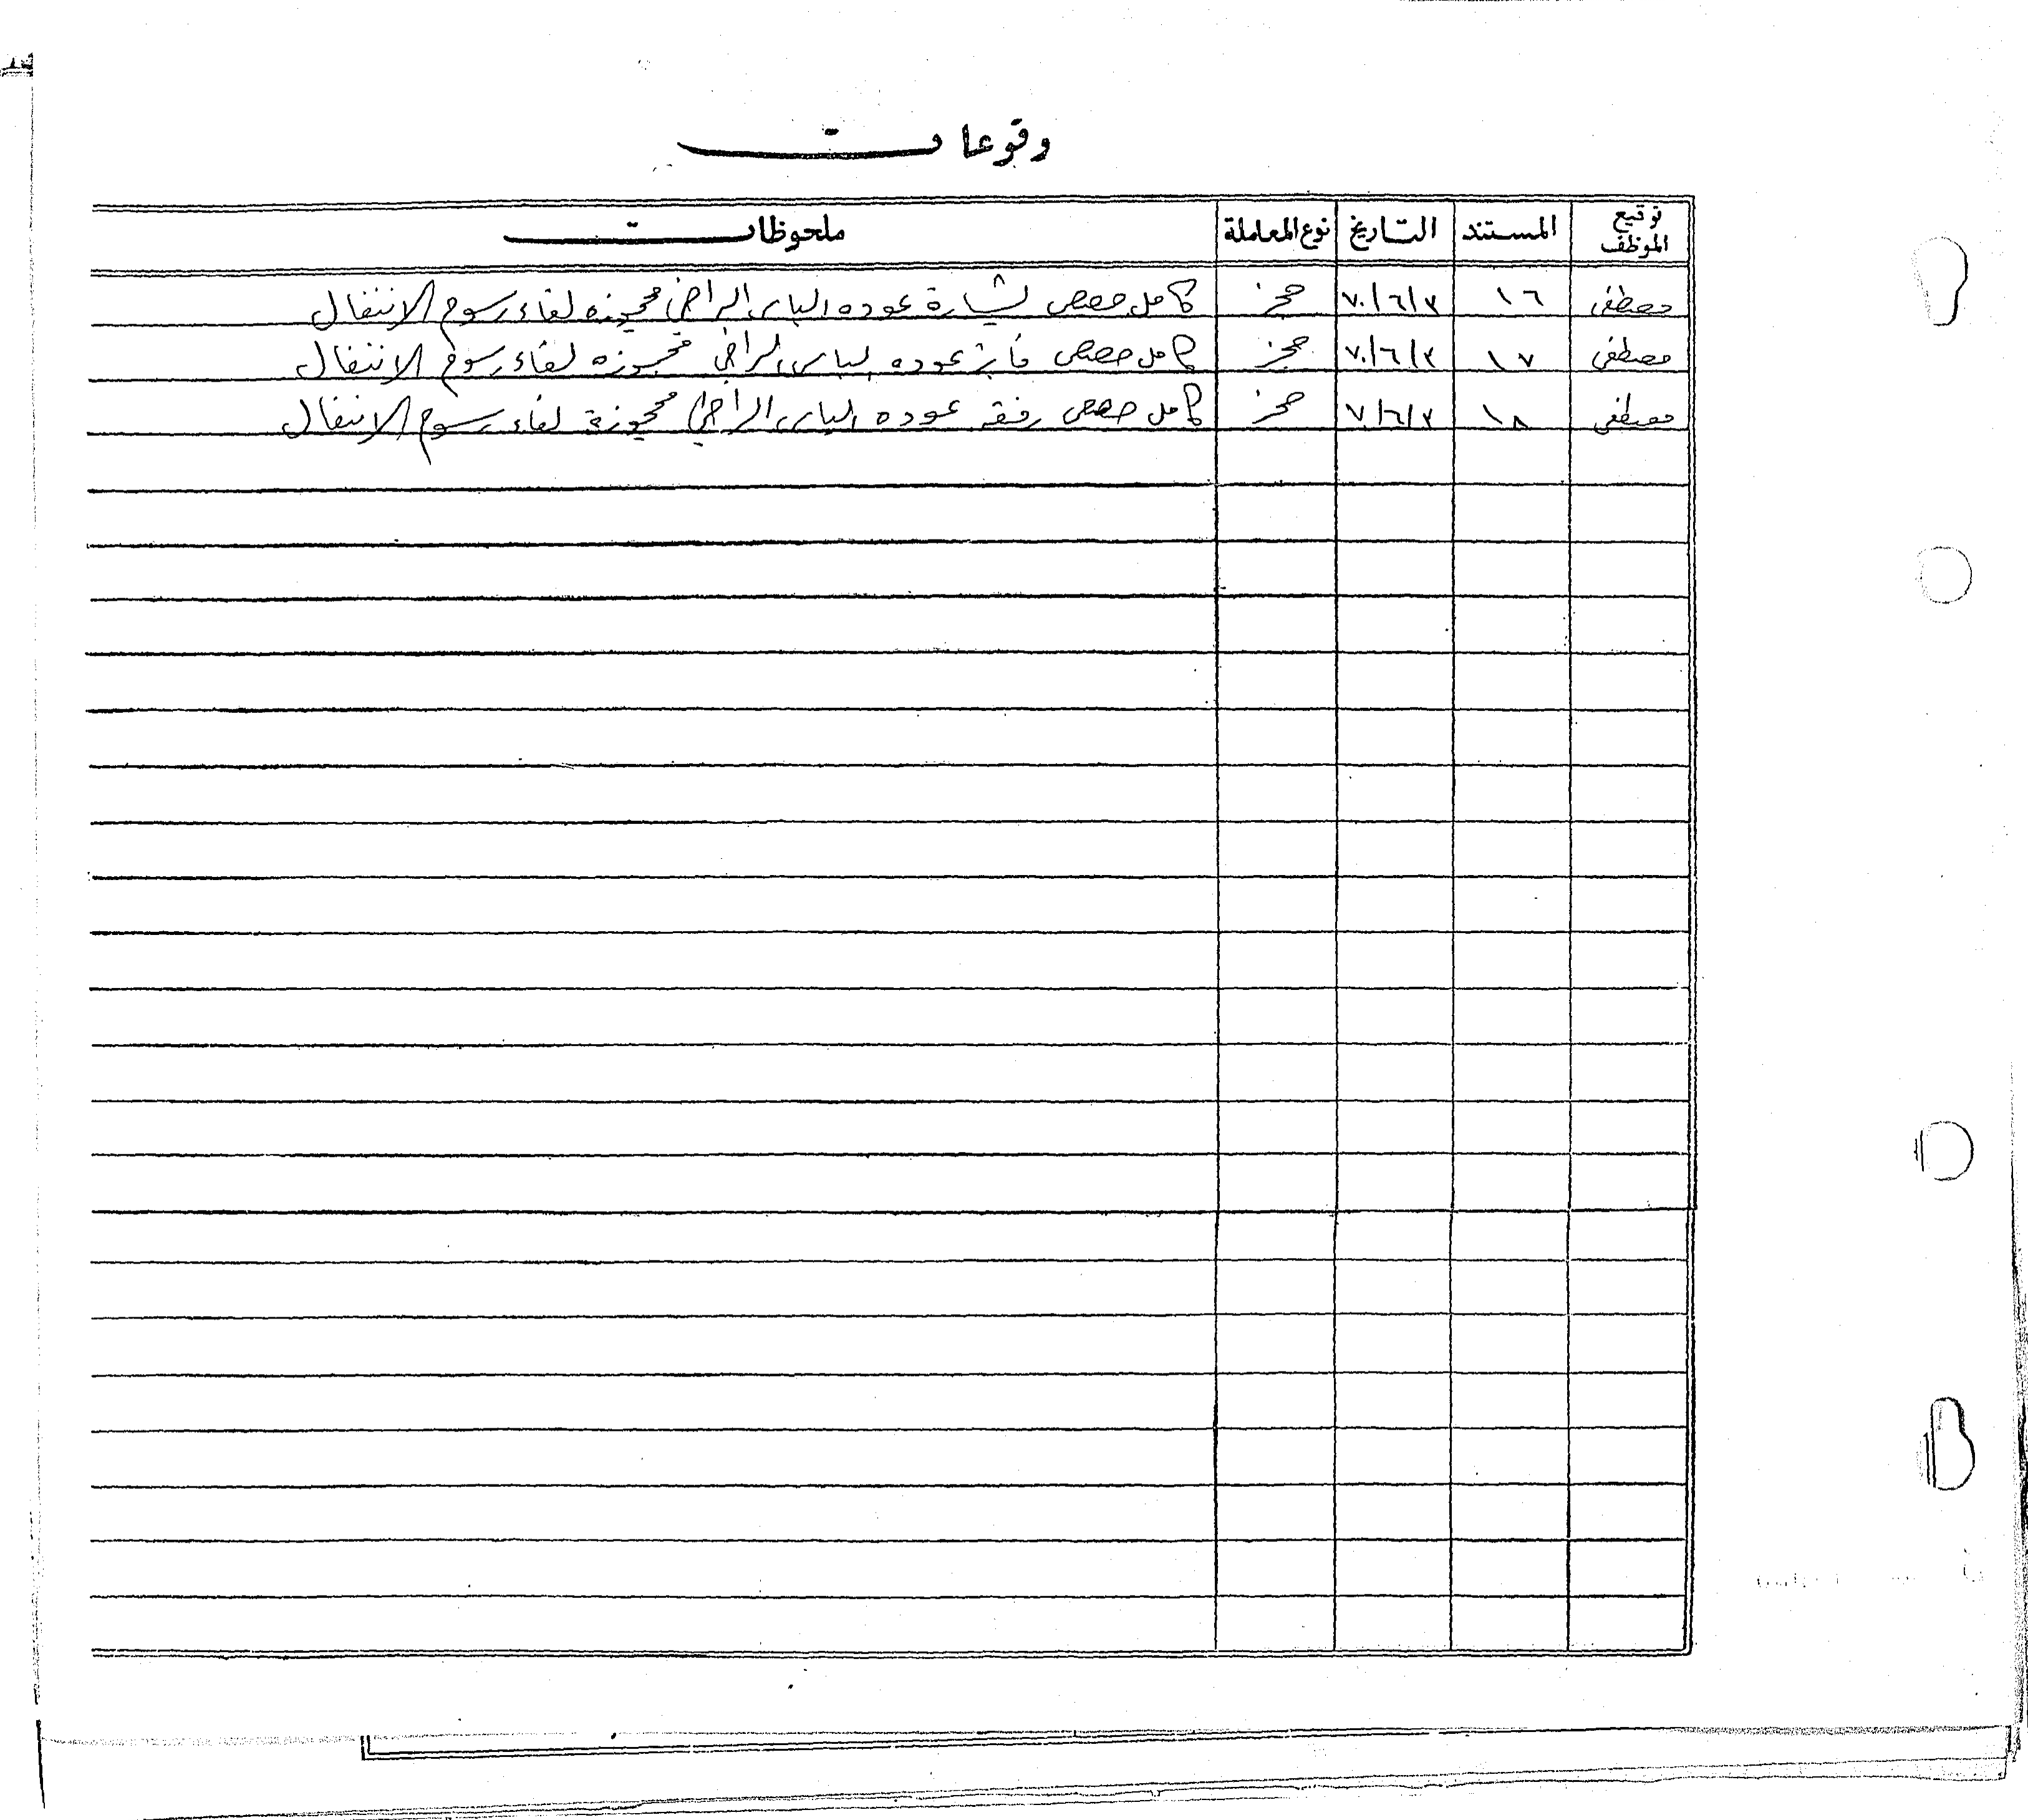 وقوعات
توقيع الموظف المستند التاريخ نوع المعاملة ملحوظات
مصطفى ١٦ ٧٠/٦/٢ حجز كامل حصص بشارة عوده الياس الراضي محجوزه لقاء رسوم الانتقال
مصطفى ١٧ ٧٠/٦/٢ حجز كامل حصص فايز عوده الياس الراضي محجوزه لقاء رسوم الانتقال
مصطفى ١٨ ٧/٦/٢ حجز كامل حصص رفقه عوده الياس الراضي محجوزة لقاء رسوم الانتقال